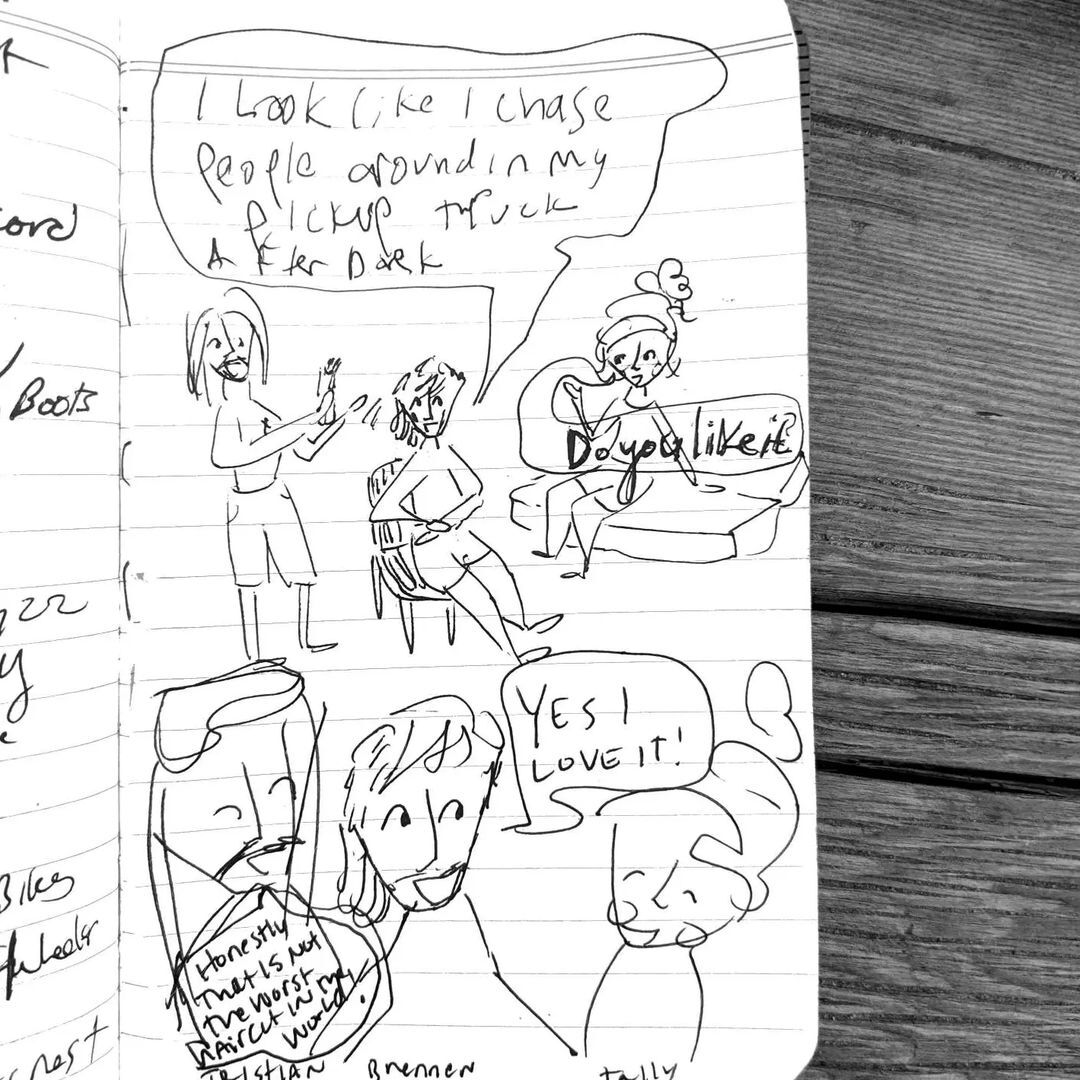 ord
Boots
Bikes
I Look like I chase
People around in my
Pickup truck
After Dark
Do you like it
YES I
LOVE IT!
Honestly
that is not
the worst
haircut in the
world!
TRISTIAN
Brennen
Tally